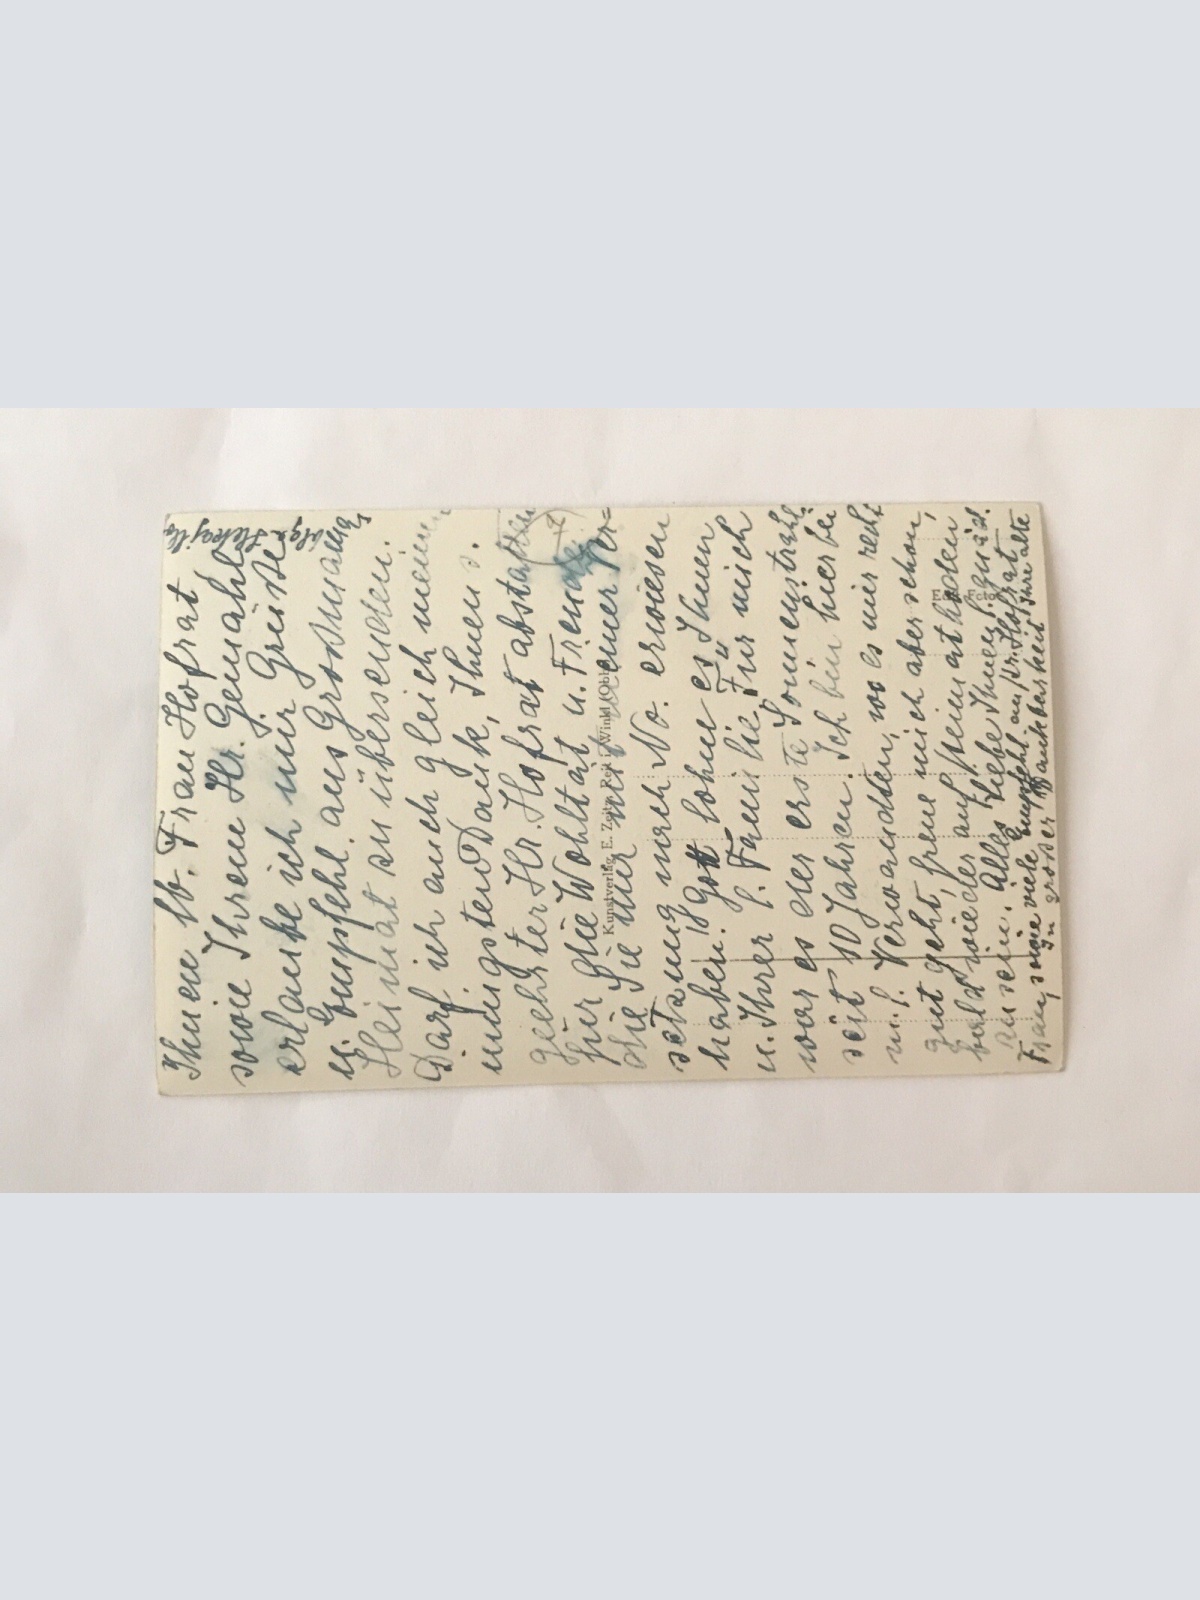 Ihnen lb. Frau Hofrat
sowie Ihrem Hr. Gemahl
erlaube ich mir Grüsse
u. Empfehl. aus Grossmamas
Heimat zu übersenden.
Darf ich auch gleich meinen
innigsten Dank, Ihnen s.
geehrter Hr. Hofrat abstatten
für die Wohltat u. Freude
die Sie mir mit meiner Ver=
setzung nach No. erwiesen
haben. "Gott lohne es Ihnen
u. Ihrer l. Familie." Für mich
war es der erste Sonnenstrahl
seit 10 Jahren. Ich bin hier bei
m. l. Verwandten, wo es mir recht
gut geht, freue mich aber schon,
bald wieder auf meinem
zu sein. Alles Liebe Ihnen
Frau, sowie viele Empfehl. an Hr. Hofrat
In grosser Dankbarkeit Ihre alte
Kunstverlag E. Zeitz, Reit i. Winkl (Obb.)